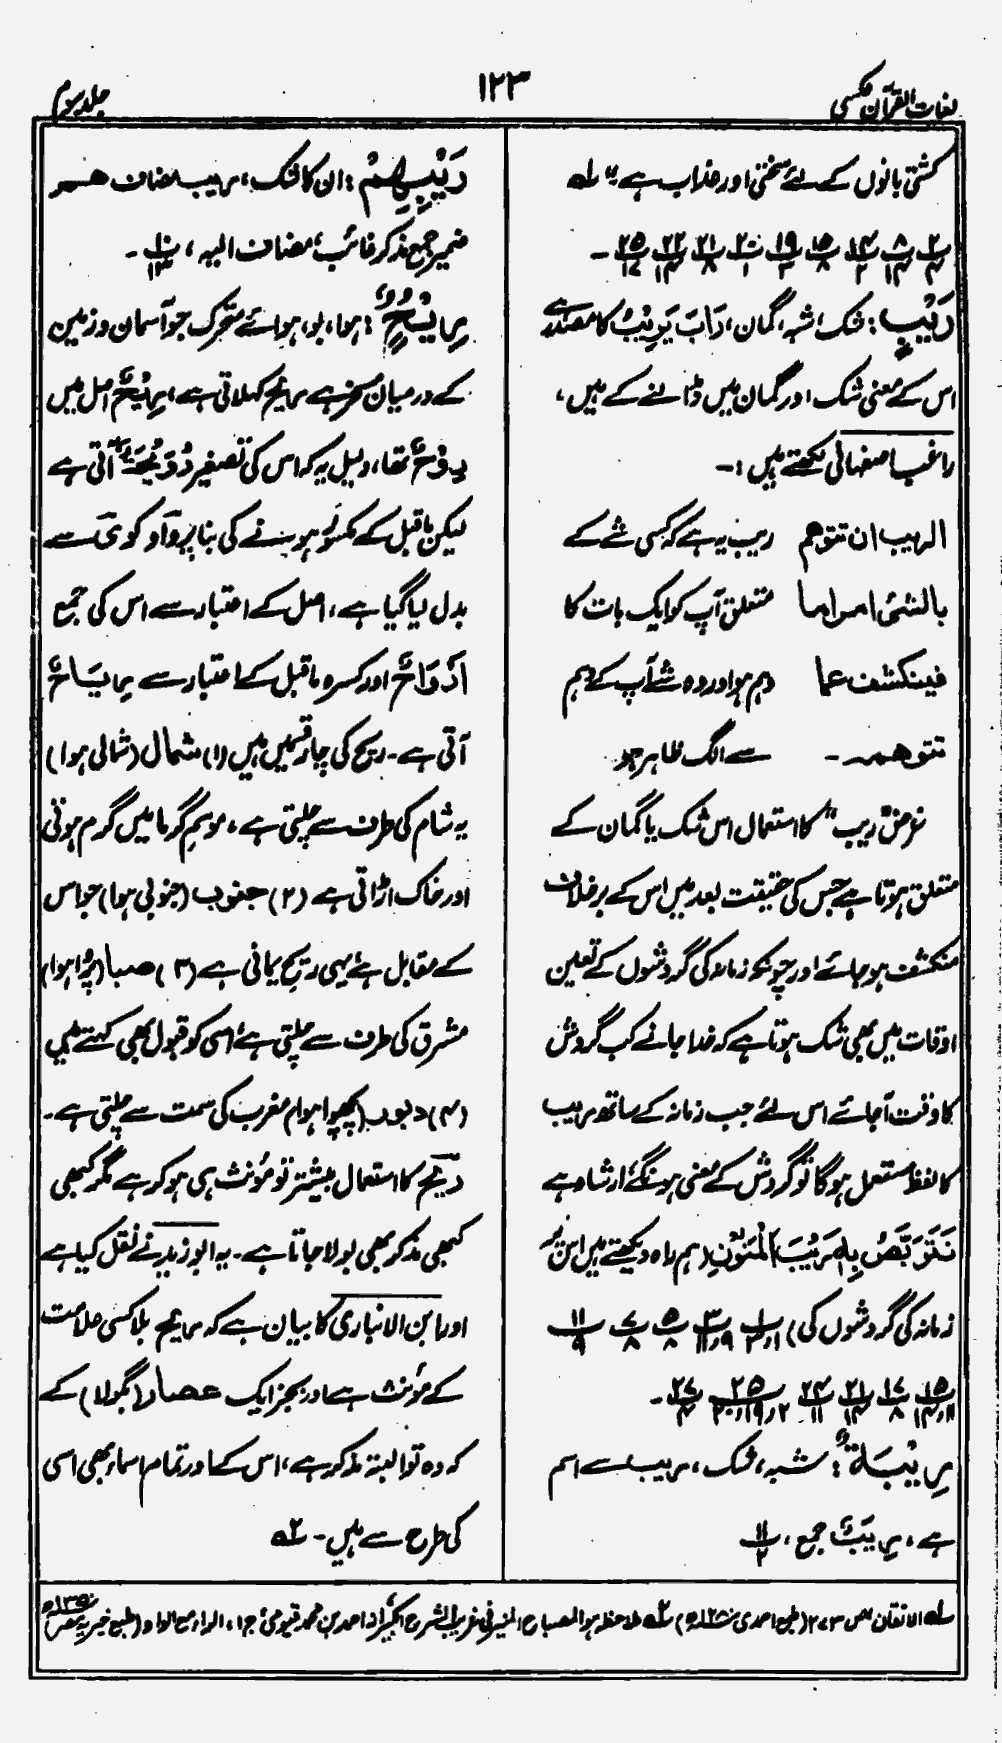 لغات القرآن عکسی
۱۲۳
جلد سوم
کشتی بانوں کے لئے سختی اور عذاب ہے" لہ
رَيْبٍ: شک، شبہ، گمان، رَابَ يَرِيْبُ کا مصدر ہے
اس کے معنی شک اور گمان میں ڈالنے کے ہیں،
راغب اصفہانی لکھتے ہیں :-
الريب ان تتوهم ریب یہ ہے کہ کسی شے کے
بالشئ امراما متعلق آپ کو ایک بات کا
فينكشف عما وہم ہو اور وہ شے آپ کے وہم
تتوهمه۔ سے الگ ظاہر ہو
غرض "ریب" کا استعمال اس شک یا گمان کے
متعلق ہوتا ہے جس کی حقیقت بعد میں اس کے برخلاف
منکشف ہو جائے اور چونکہ زمانہ کی گردشوں کے تعین
اوقات میں بھی شک ہوتا ہے کہ خدا جانے کب گردش
کا وقت آ جائے اس لئے جب زمانہ کے ساتھ ریب
کا لفظ مستعمل ہوگا تو گردش کے معنی ہونگے ارشاد ہے
نَتَرَبَّصُ بِهٖ رَيْبَ الْمَنُوْنِ (ہم راہ دیکھتے ہیں اس پر
زمانہ کی گردشوں کی)
رِيْبَةً: شبہ، شک، ریب سے اسم
ہے، رِيَبٌ جمع،
رَيْبِهِمْ: ان کا شک، ریب مضاف هم
ضمیر جمع مذکر غائب، مضاف الیہ،
رِيْحٌ: ہوا، بو، ہوائے متحرک جو آسمان و زمین
کے درمیان مسخر ہے ریح کہلاتی ہے، رِيْحٌ اصل میں
رِوْحٌ تھا، دلیل یہ کہ اس کی تصغیر رُوَيْحَةٌ آتی ہے
لیکن ماقبل کے مکسور ہونے کی بنا پر واو کو ی سے
بدل لیا گیا ہے، اصل کے اعتبار سے اس کی جمع
اَرْوَاحٌ اور کسرہ ماقبل کے اعتبار سے رِيَاحٌ
آتی ہے۔ ریح کی چار قسمیں ہیں (۱) شمال (شمالی ہوا)
یہ شام کی طرف سے چلتی ہے، موسم گرما میں گرم ہوتی
اور خاک اڑاتی ہے (۲) جنوب (جنوبی ہوا) جو اس
کے مقابل ہے یہی ریح یمانی ہے (۳) صبا (پروا ہوا)
مشرق کی طرف سے چلتی ہے اسی کو قبول بھی کہتے ہیں
(۴) دبور (پچھوا ہوا) مغرب کی سمت سے چلتی ہے۔
ریح کا استعمال بیشتر تو مؤنث ہی ہو کر ہے مگر کبھی
کبھی مذکر بھی بولا جاتا ہے۔ یہ ابو زید نے نقل کیا ہے
اور ابن الانباری کا بیان ہے کہ ریح بلا کسی علامت
کے مؤنث ہے اور بجز ایک عصار (بگولا) کے
کہ وہ تو البتہ مذکر ہے، اس کے اور تمام اسماء بھی اسی
کی طرح سے ہیں۔ ۲ہ
لہ الاتقان ص ۲۷۳ (طبع احمدی) ۲ہ ملاحظہ ہو المصباح المنیر فی غریب الشرح الکبیر از احمد بن محمد فیومی ج ۱، الراء مع الواو (طبع خیریہ مصر)